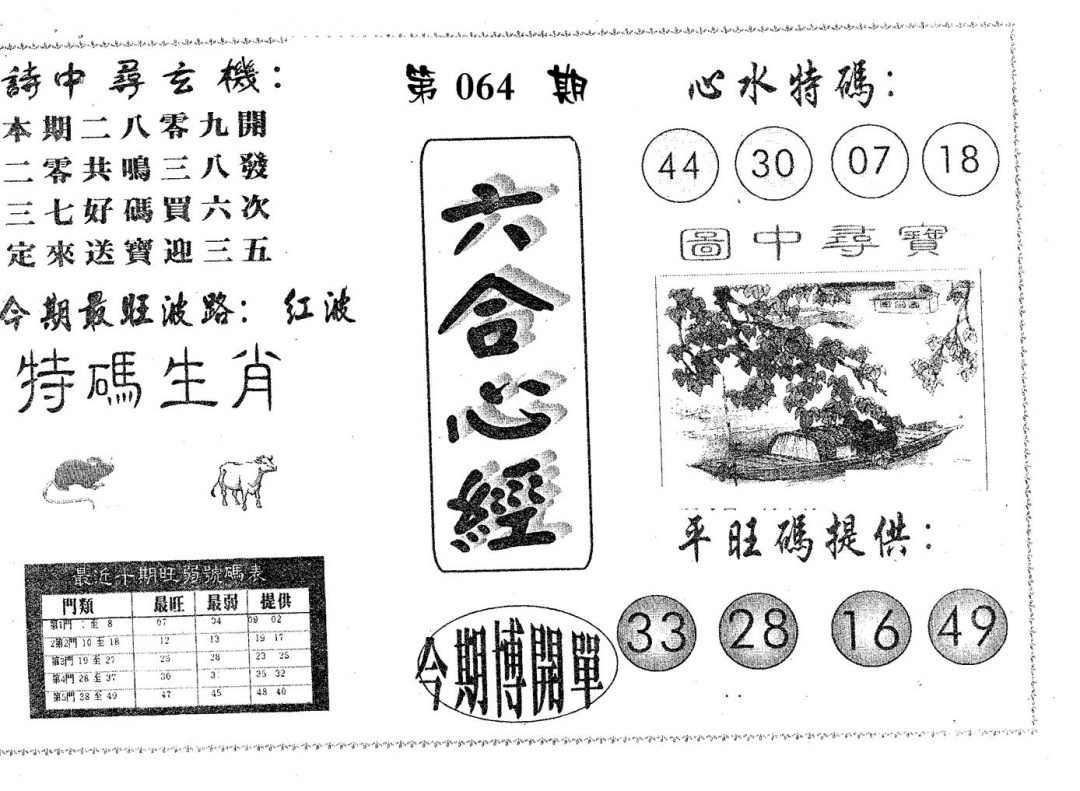 詩中尋玄機：
本期二八零九開
二零共鳴三八發
三七好碼買六次
定來送寶迎三五
今期最旺波路：紅波
特碼生肖
最近十期旺弱號碼表
門類 最旺 最弱 提供
第1門 : 至 8 07 04 09 02
2第2門 10 至 18 12 13 19 17
第3門 19 至 27 28 23 25
第4門 28 至 37 30 35 32
第5門 38 至 49 47 45 48 40
第 064 期
六合心經
今期博開單
心水特碼：
44 30 07 18
圖中尋寶
平旺碼提供：
33 28 16 49